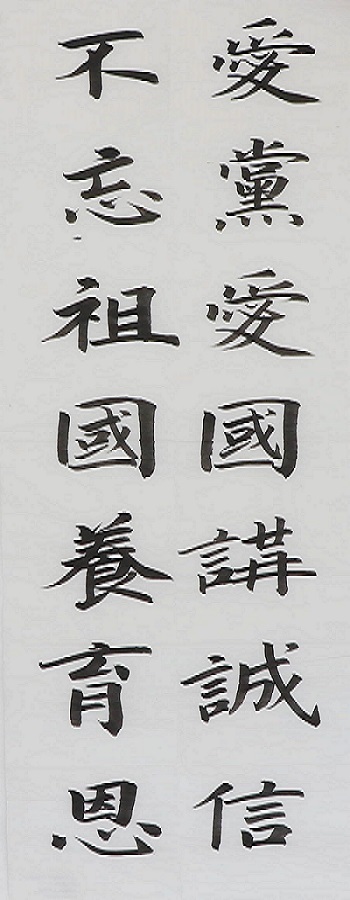 愛黨愛國講誠信
不忘祖國養育恩